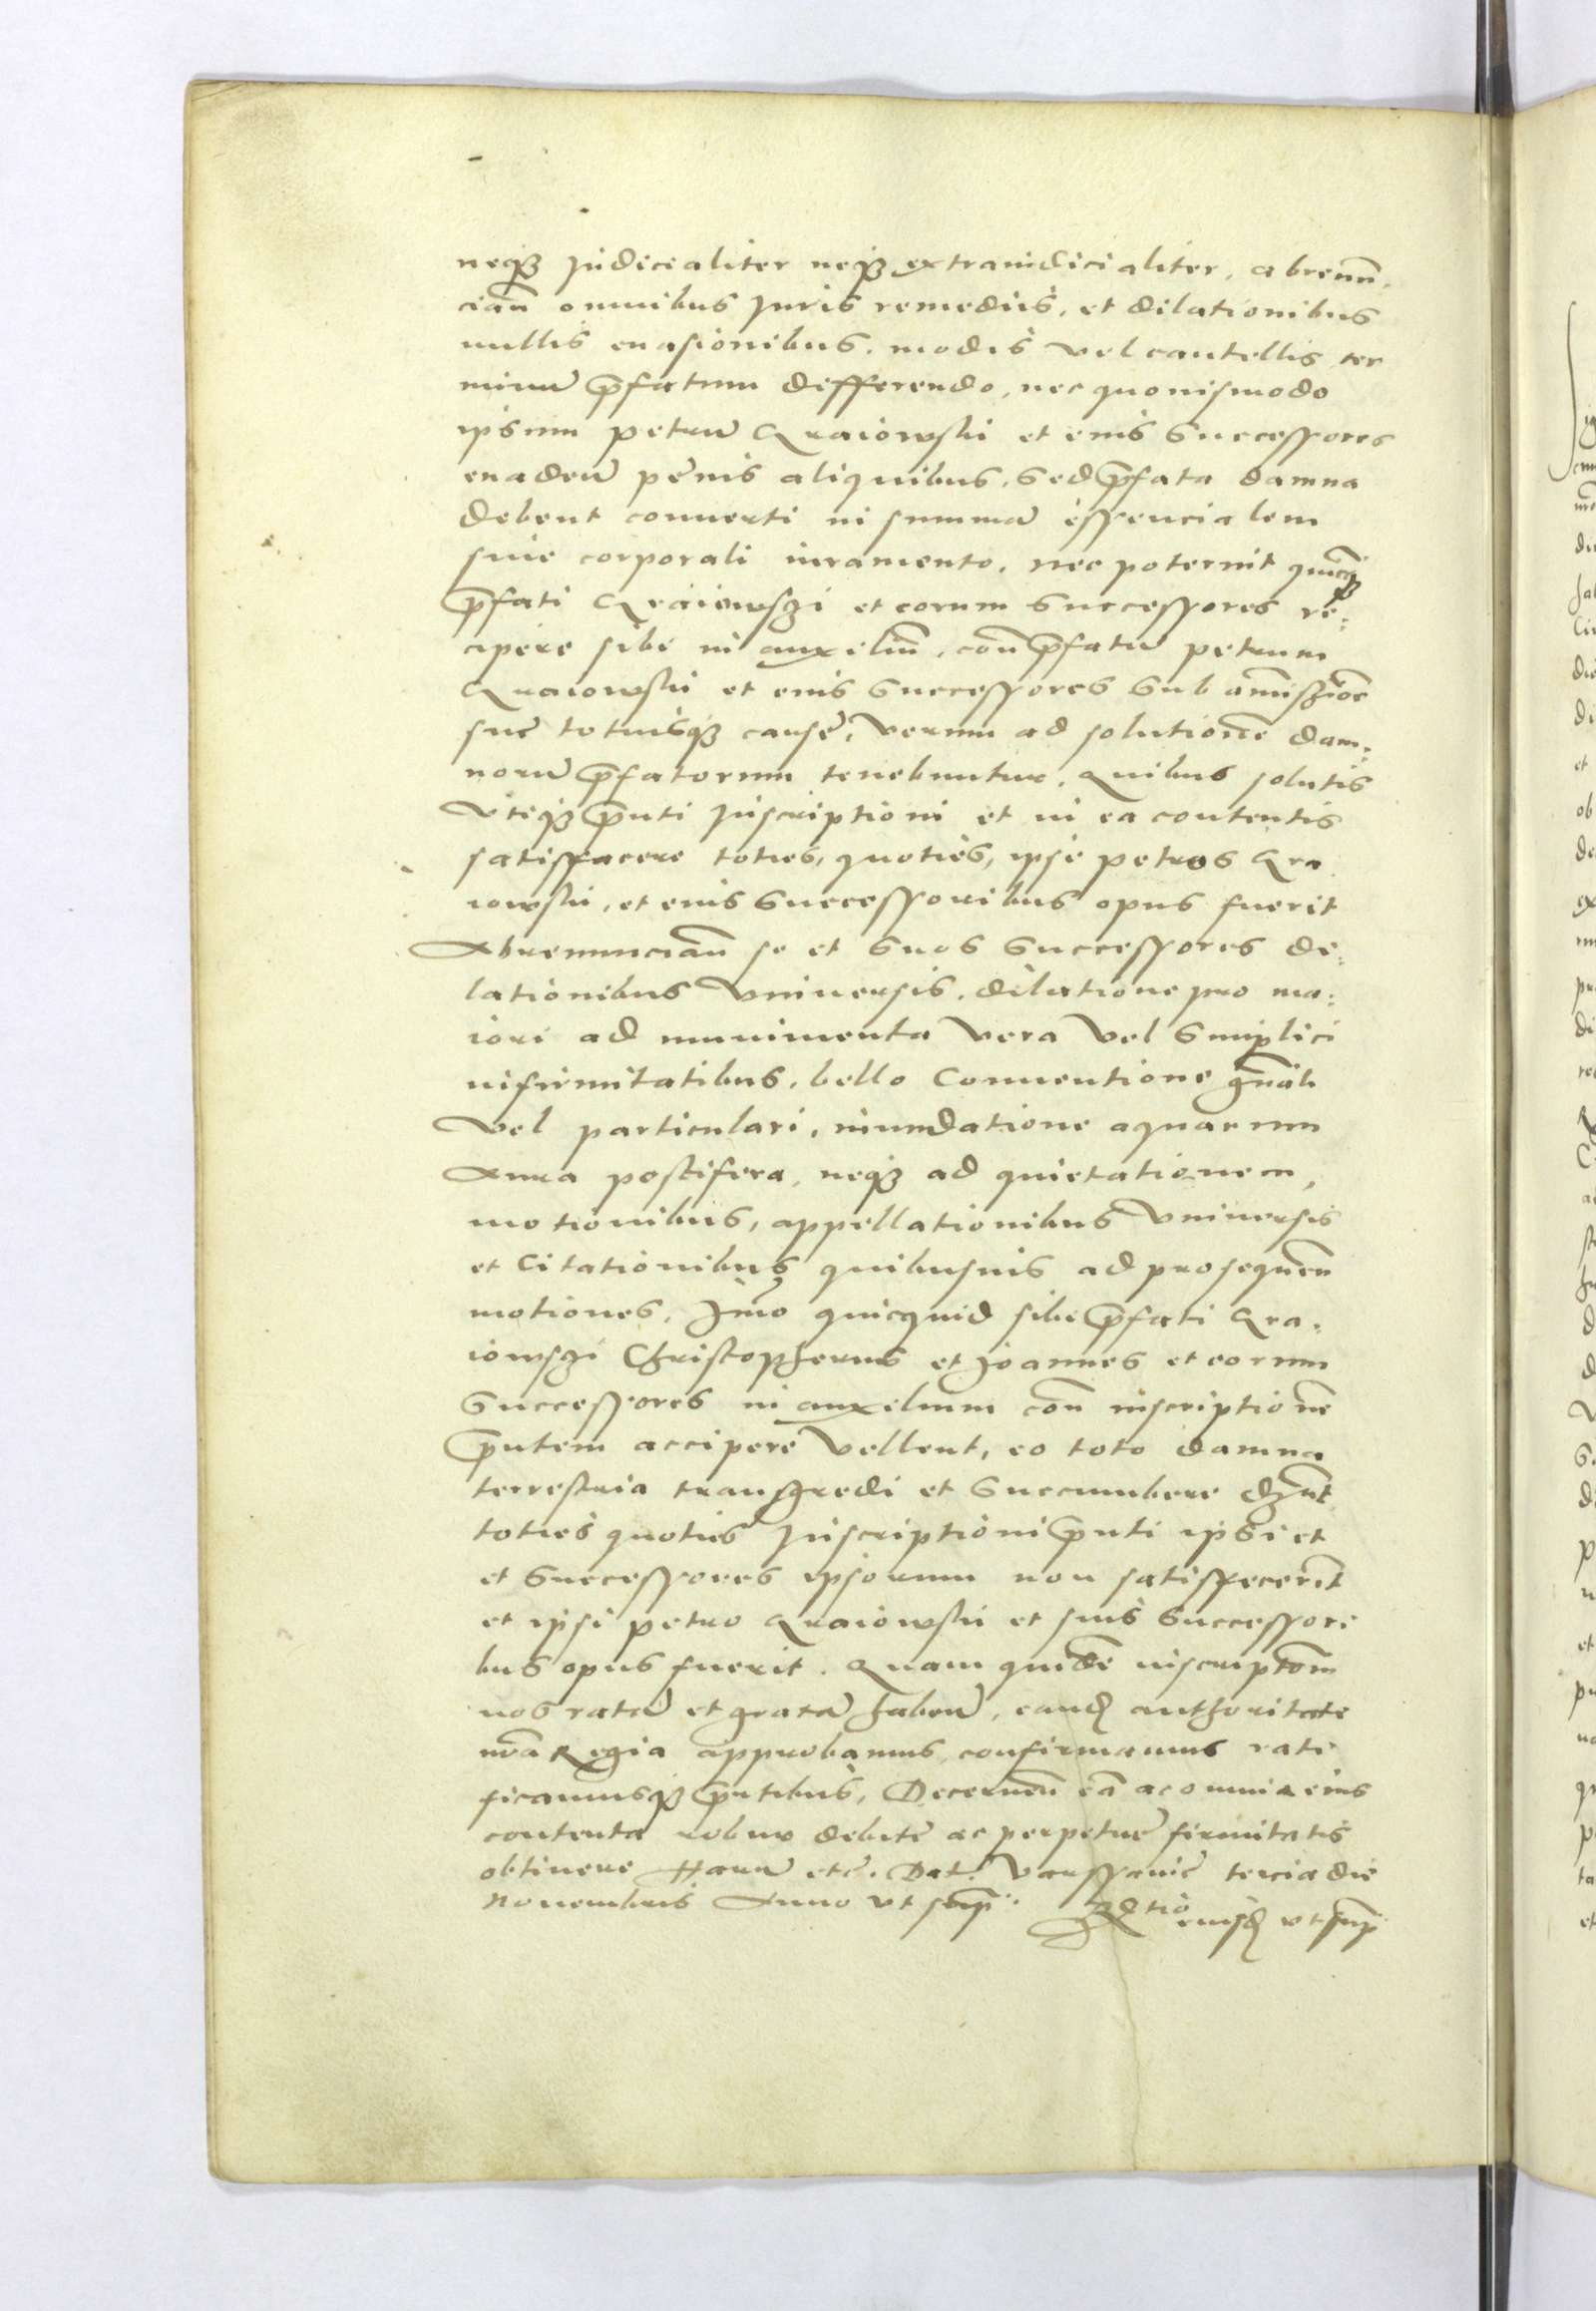 neq3 Judicialiter neq3 extraiudicialiter, abrenun̄,
cian̄ omnibus Juris remediis, et dilationibus
nullis euasionibus, modis vel cautellis ter
minū p̄fatum defferendo, nec quouismodo
ipsum petrū Kraiowski et eius Successores
euadeū penis aliquibus, Sed p̄fata damna
debent conuerti in summā essencialem
siue corporali iuramento, nec poterint quicq3
p̄fati Kraiowsʒi et eorum Successores re:
cipere sibi in auxiliū, con̄ p̄fatū petrum
Kraiowski et eius Successores Sub am̄issione
sue totiusq3 cause, verum ad solutionē dam:
norū p̄fatorum tenebuntur, Quibus solutis
Vteq3 p̄nti Inscriptioni et in ea contentis
satisfacere toties, quoties, ipsi petro Kra
iowski, et eius Successoribus opus fuerit
Abrenuncian̄ se et Suos Successores de:
lationibus Vniuersis, dilatione pro ma:
iori ad munimenta vera vel Simplici
infirmitatibus, bello Conuentione gn̄ali
Vel particulari, inundatione aquarum
Aura pestifera, neq3 ad quietationem,
motionibus, appellationibus Vniuersis
et Citationibus quibusuis ad prosequen̄
motiones, Imo quicquid sibi p̄fati Kra:
iowsʒi Christopherus et Joannes et eorum
Successores in auxilium con̄ inscriptionē
p̄ntem accipere Vellent, eo toto damna
terrestria transgredi et Succumbere dʒnt
toties quoties Inscriptioni p̄nti ipsi et
et Successores ipsorum non satisfecerīt
et ipsi petro Kraiowski et suis Successori
bus opus fuerit. Quam quidē inscriptōm
nos ratū et gratā habeū, eand authoritate
nr̄a Regia approbamus, confirmamus rati
ficamusq3 p̄ntibus, Decernen̄ eā ac omnia eius
contenta robur debite ac perpetue firmitatis
obtinere Harū etc. Dat. Varssauie tercia die
Nouembris Anno vt sup̄.
Rtio eiusd vt sup̄